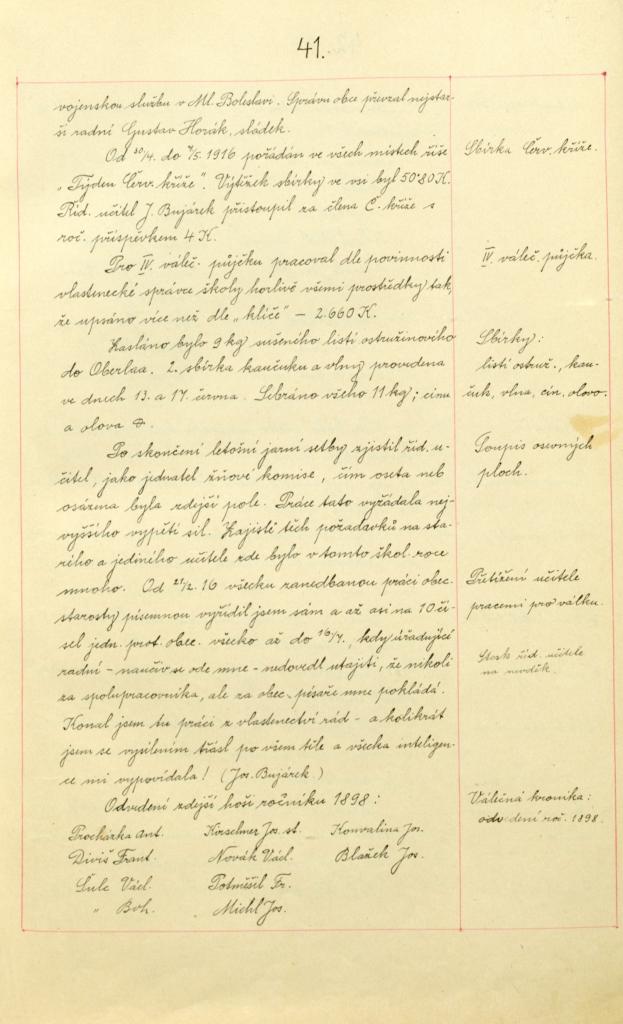 41.
vojenskou službu v Ml. Boleslavi. Správu obce převzal nejstar-
ší radní Gustav Horák, sládek.
Od 30/4. do 7/5. 1916 pořádán ve všech místech říše
Sbírka Červ. kříže.
„Týden Červ. kříže". Výtěžek sbírky ve vsi byl 50·80 K.
Říd. učitel J. Bujárek přistoupil za člena Č. kříže s
roč. příspěvkem 4 K.
Pro IV. váleč. půjčku pracoval dle povinnosti
IV. váleč. půjčka.
vlastenecké správce školy horlivě všemi prostředky tak,
že upsáno více než dle „klíče" – 2.660 K.
Zasláno bylo 9 kg sušeného listí ostružinového
Sbírky:
do Oberlaa. 2. sbírka kaučuku a vlny provedena
listí ostruž., kau-
ve dnech 13. a 17. června. Sebráno všeho 11 kg; cínu
čuk, vlna, cín, olovo.
a olova
Po skončení letošní jarní setby zjistil říd. u-
Soupis osevných
čitel, jako jednatel žňové komise, čím oseta neb
ploch.
osázena byla zdejší pole. Práce tato vyžádala nej-
vyššího vypětí sil. Zajisté těch požadavků na sta-
rého a jediného učitele zde bylo v tomto škol. roce
mnoho. Od 16 všecku zanedbanou práci obec.
Přetížení učitele
starosty písemnou vyřídil jsem sám a až asi na 10 čí-
pracemi pro válku.
sel jedn. prot. obec. všecko až do 16/7. kdy úřadující
radní – naučiv se ode mne – nedovedl utajiti, že nikoli
Stesk říd. učitele
za spolupracovníka, ale za obec. písaře mne pokládá.
na nevděk.
Konal jsem tu práci z vlastenectví rád – a kolikrát
jsem se vysílením třásl po všem těle a všecka inteligen-
ce mi vypovídala! (Jos. Bujárek)
Odvedeni zdejší hoši ročníku 1898:
Válečná kronika:
odvedení roč. 1898.
Procházka Ant. Kirschner Jos. st. Konvalina Jos.
Diviš Frant. Novák Václ. Blažek Jos.
Šulc Václ. Potměšil Fr.
„ Boh. Michl Jos.